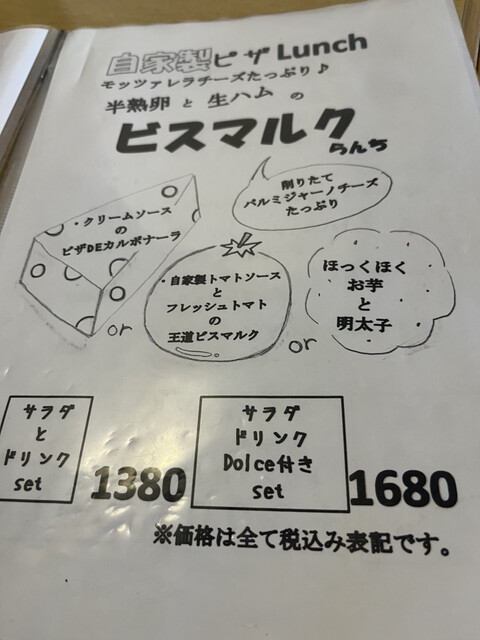 自家製ピザLunch
モッツァレラチーズたっぷり♪
半熟卵と生ハムの
ビスマルク
らんち
削りたて
パルミジャーノチーズ
たっぷり
・クリームソース
の
ピザDEカルボナーラ
or
・自家製トマトソース
と
フレッシュトマト
の
王道ビスマルク
or
ほっくほく
お芋
と
明太子
サラダ
と
ドリンク
set
1380
サラダ
ドリンク
Dolce付き
set
1680
※価格は全て税込み表記です。